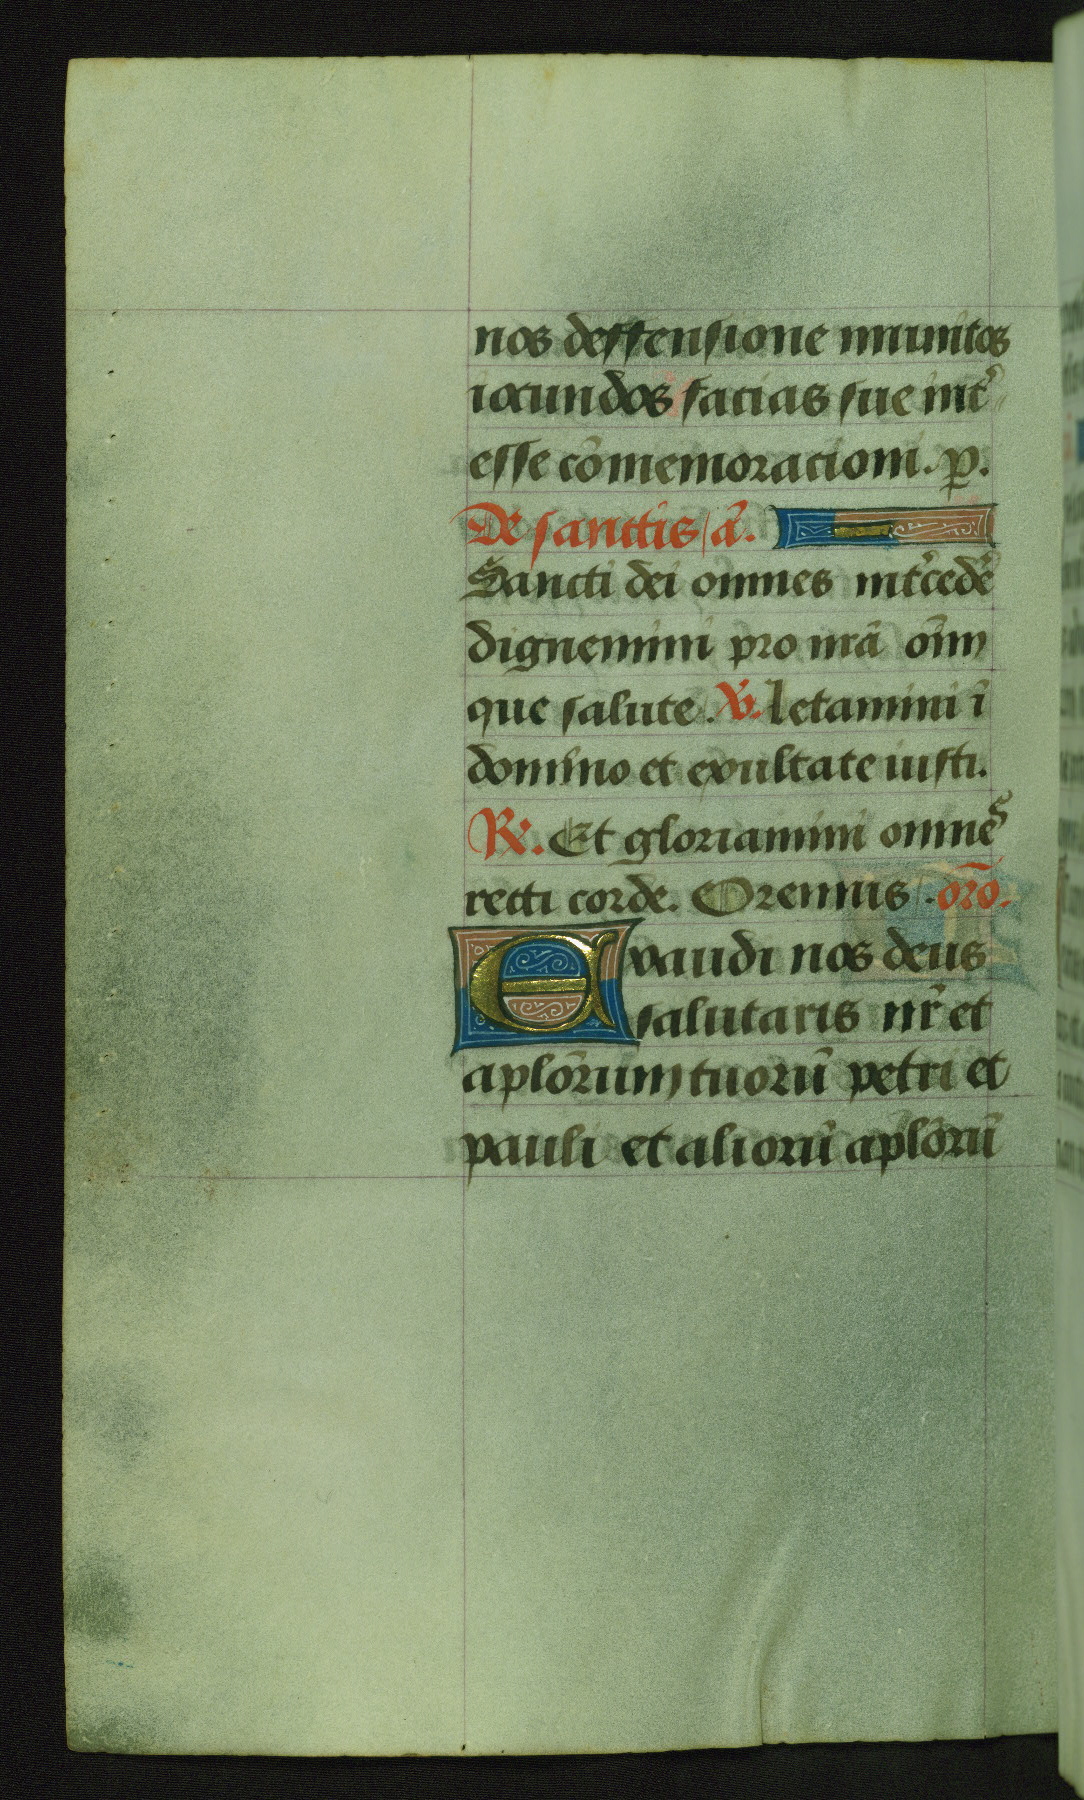 nos deffensione munitos
iocundos facias sue int̉
esse cōmemoracioni. p̲.
De sanctis a͞.
Sancti dei omnes int̉cedẻ
dignemini pro nr̄a om̄m
que salute. ℣. Letamini ī
domino et exultate iusti.
℟. Et gloriamini omnes
recti corde. Oremus. or̄o.
Exaudi nos deus
salutaris nr̉ et
aplōrum tuorū petri et
pauli et aliorū aplōrū